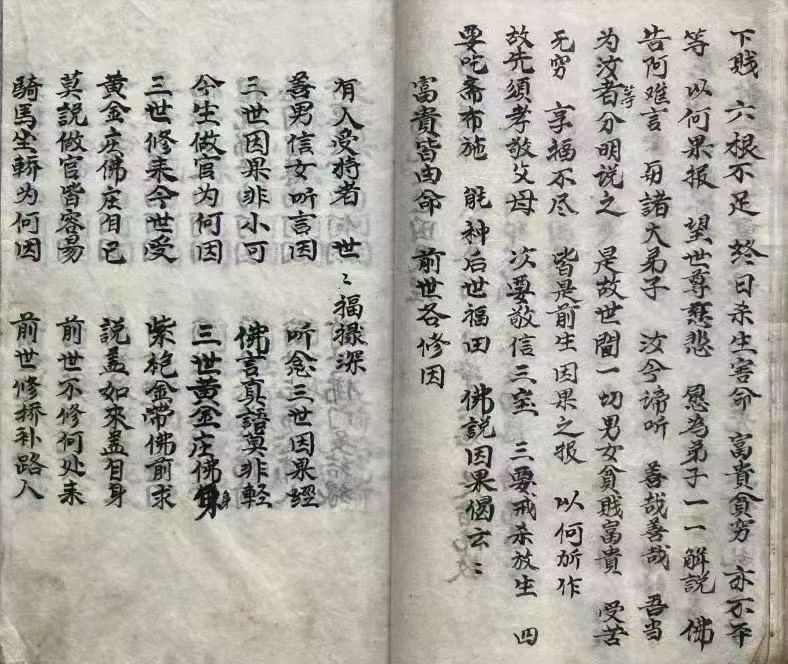 下贱 六根不足 终日杀生害命 富貴貧窮 亦不平
等 以何果报 望世尊慈悲 愿為弟子一一解説 佛
告阿难言 每諸大弟子 汝今谛听 善哉善哉 吾当
为汝等者分明説之 是故世間一切男女貧贱富貴 受苦
无穷 享福不尽 皆是前生因果之报 以何所作
故先須孝敬父母 次要敬信三宝 三要戒杀放生 四
要吃斋布施 能种后世福田 佛説因果偈云:
富貴皆由命 前世各修因
有人受持者 世:福禄深
善男信女听言因 听念三世因果經
三世因果非小可 佛言真語莫非軽
今生做官为何因 三世黄金庄佛身
三世修来今世受 紫袍金帶佛前求
黄金庄佛庄自己 説盖如來盖自身
莫説做官皆容易 前世不修何处来
騎馬坐轿为何因 前世修桥补路人